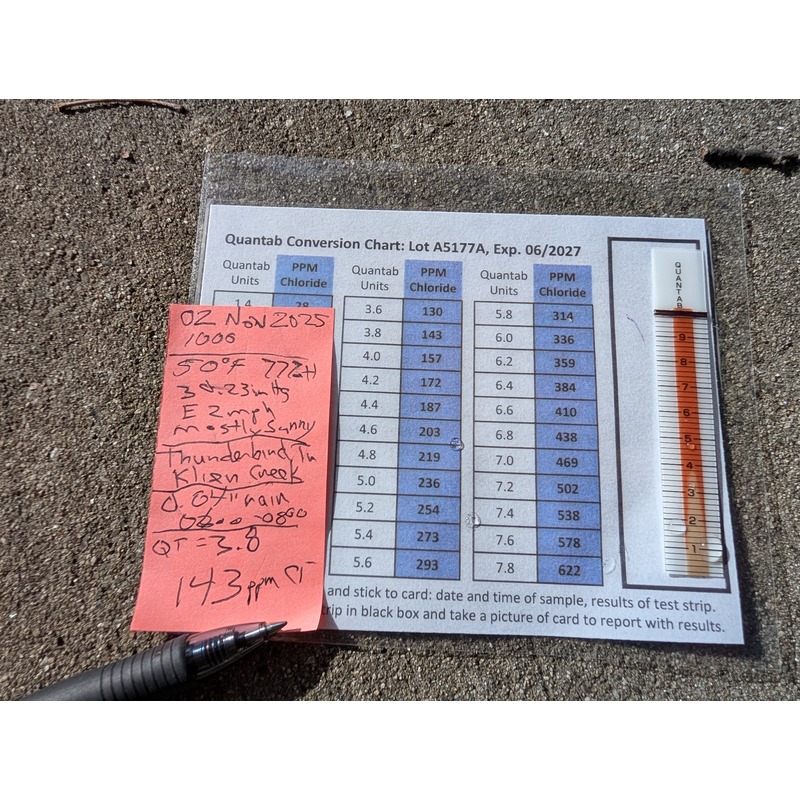 Quantab Conversion Chart: Lot A5177A, Exp. 06/2027
Quantab Units PPM Chloride
1.4 28
Quantab Units PPM Chloride
3.6 130
3.8 143
4.0 157
4.2 172
4.4 187
4.6 203
4.8 219
5.0 236
5.2 254
5.4 273
5.6 293
Quantab Units PPM Chloride
5.8 314
6.0 336
6.2 359
6.4 384
6.6 410
6.8 438
7.0 469
7.2 502
7.4 538
7.6 578
7.8 622
and stick to card: date and time of sample, results of test strip.
trip in black box and take a picture of card to report with results.
QUANTAB
9
8
7
6
5
4
3
2
1
02 Nov 2025
1000
50°F 77%H
30.23inHg
E 2mph
mostly sunny
Thunderbird Tr
Klien Creek
0.04" rain
-0800
QT = 3.8
143 ppm Cl⁻